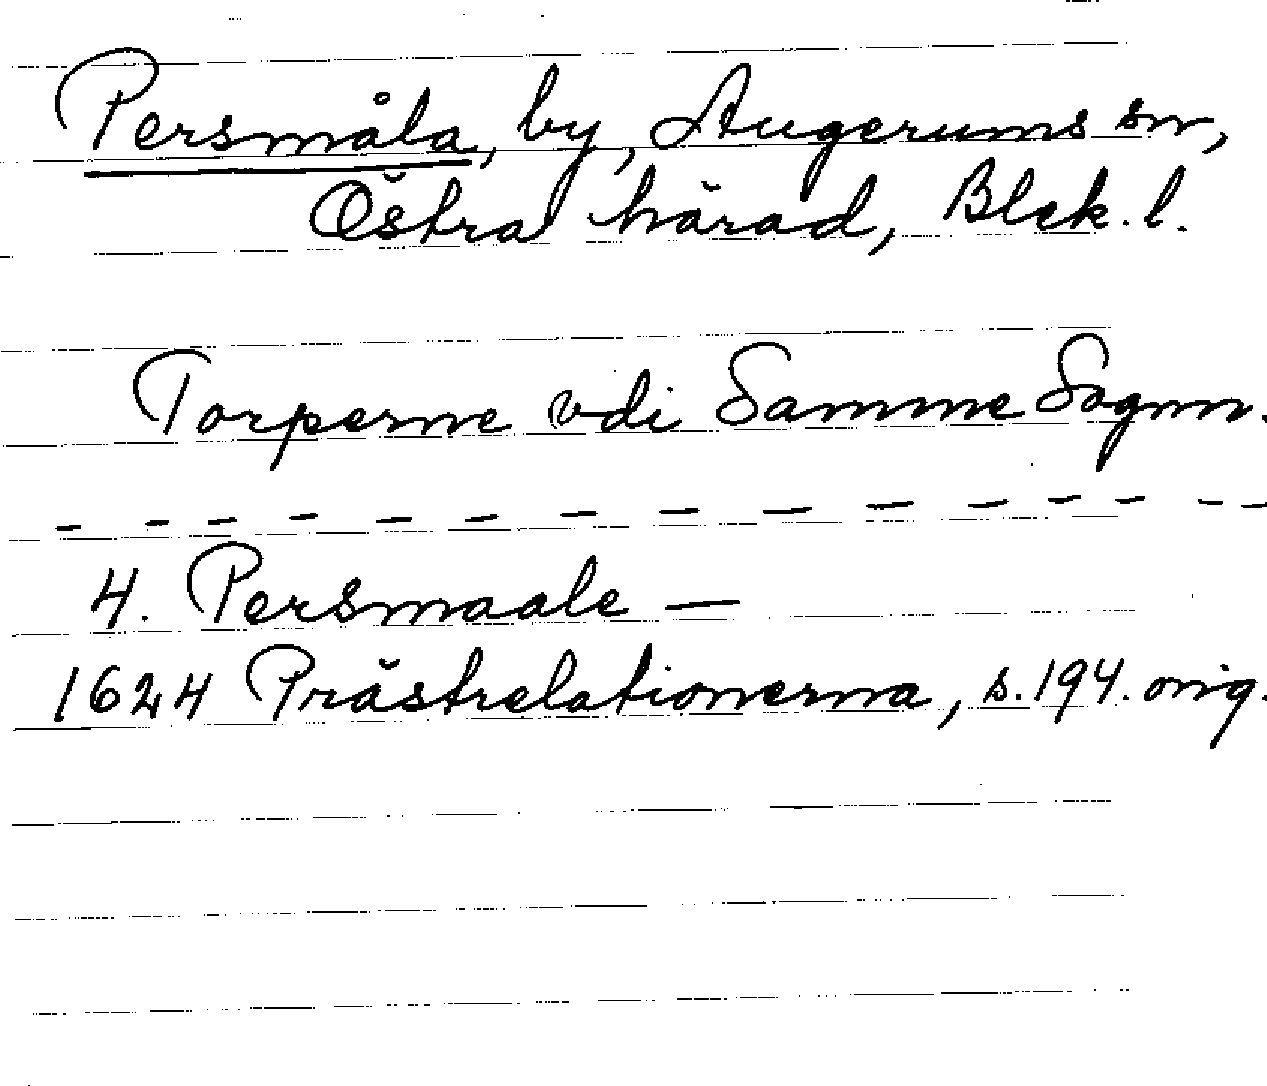 Persmåla, by, Augerums sn,
Östra härad, Blek. l.
Torperne vdi Samme Sognn.
- - - - - - - - - - - - - - -
4. Persmaale —
1624 Prästrelationerna, s. 194. orig.